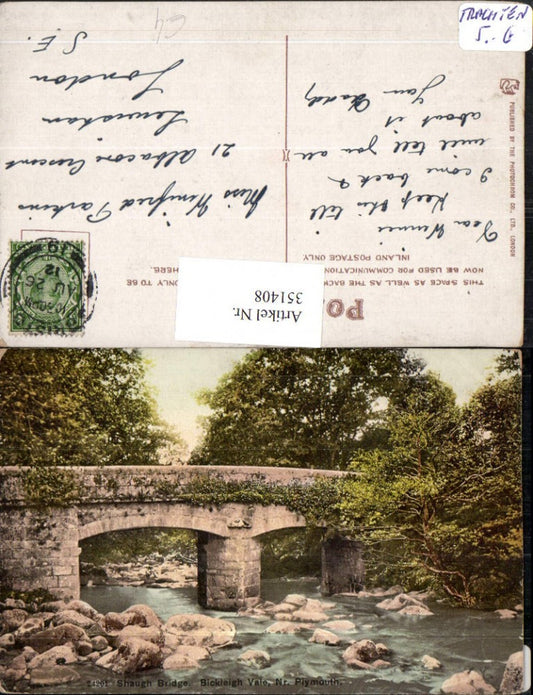 TRACHTEN
5.- G
64
Dear Winnie
Keep this till
I come back &
will tell you all
about it
Your Daddy
Miss Winifred Parkins
21 Albacore Crescent
Lewisham
London
S.E.
POS
THIS SPACE AS WELL AS THE BACK
NOW BE USED FOR COMMUNICATION
INLAND POSTAGE ONLY.
ONLY TO BE
HERE.
PUBLISHED BY THE PHOTOCHROM CO., LTD. LONDON
AU 26
12
Artikel Nr.
351408
Shaugh Bridge. Bickleigh Vale, Nr. Plymouth.